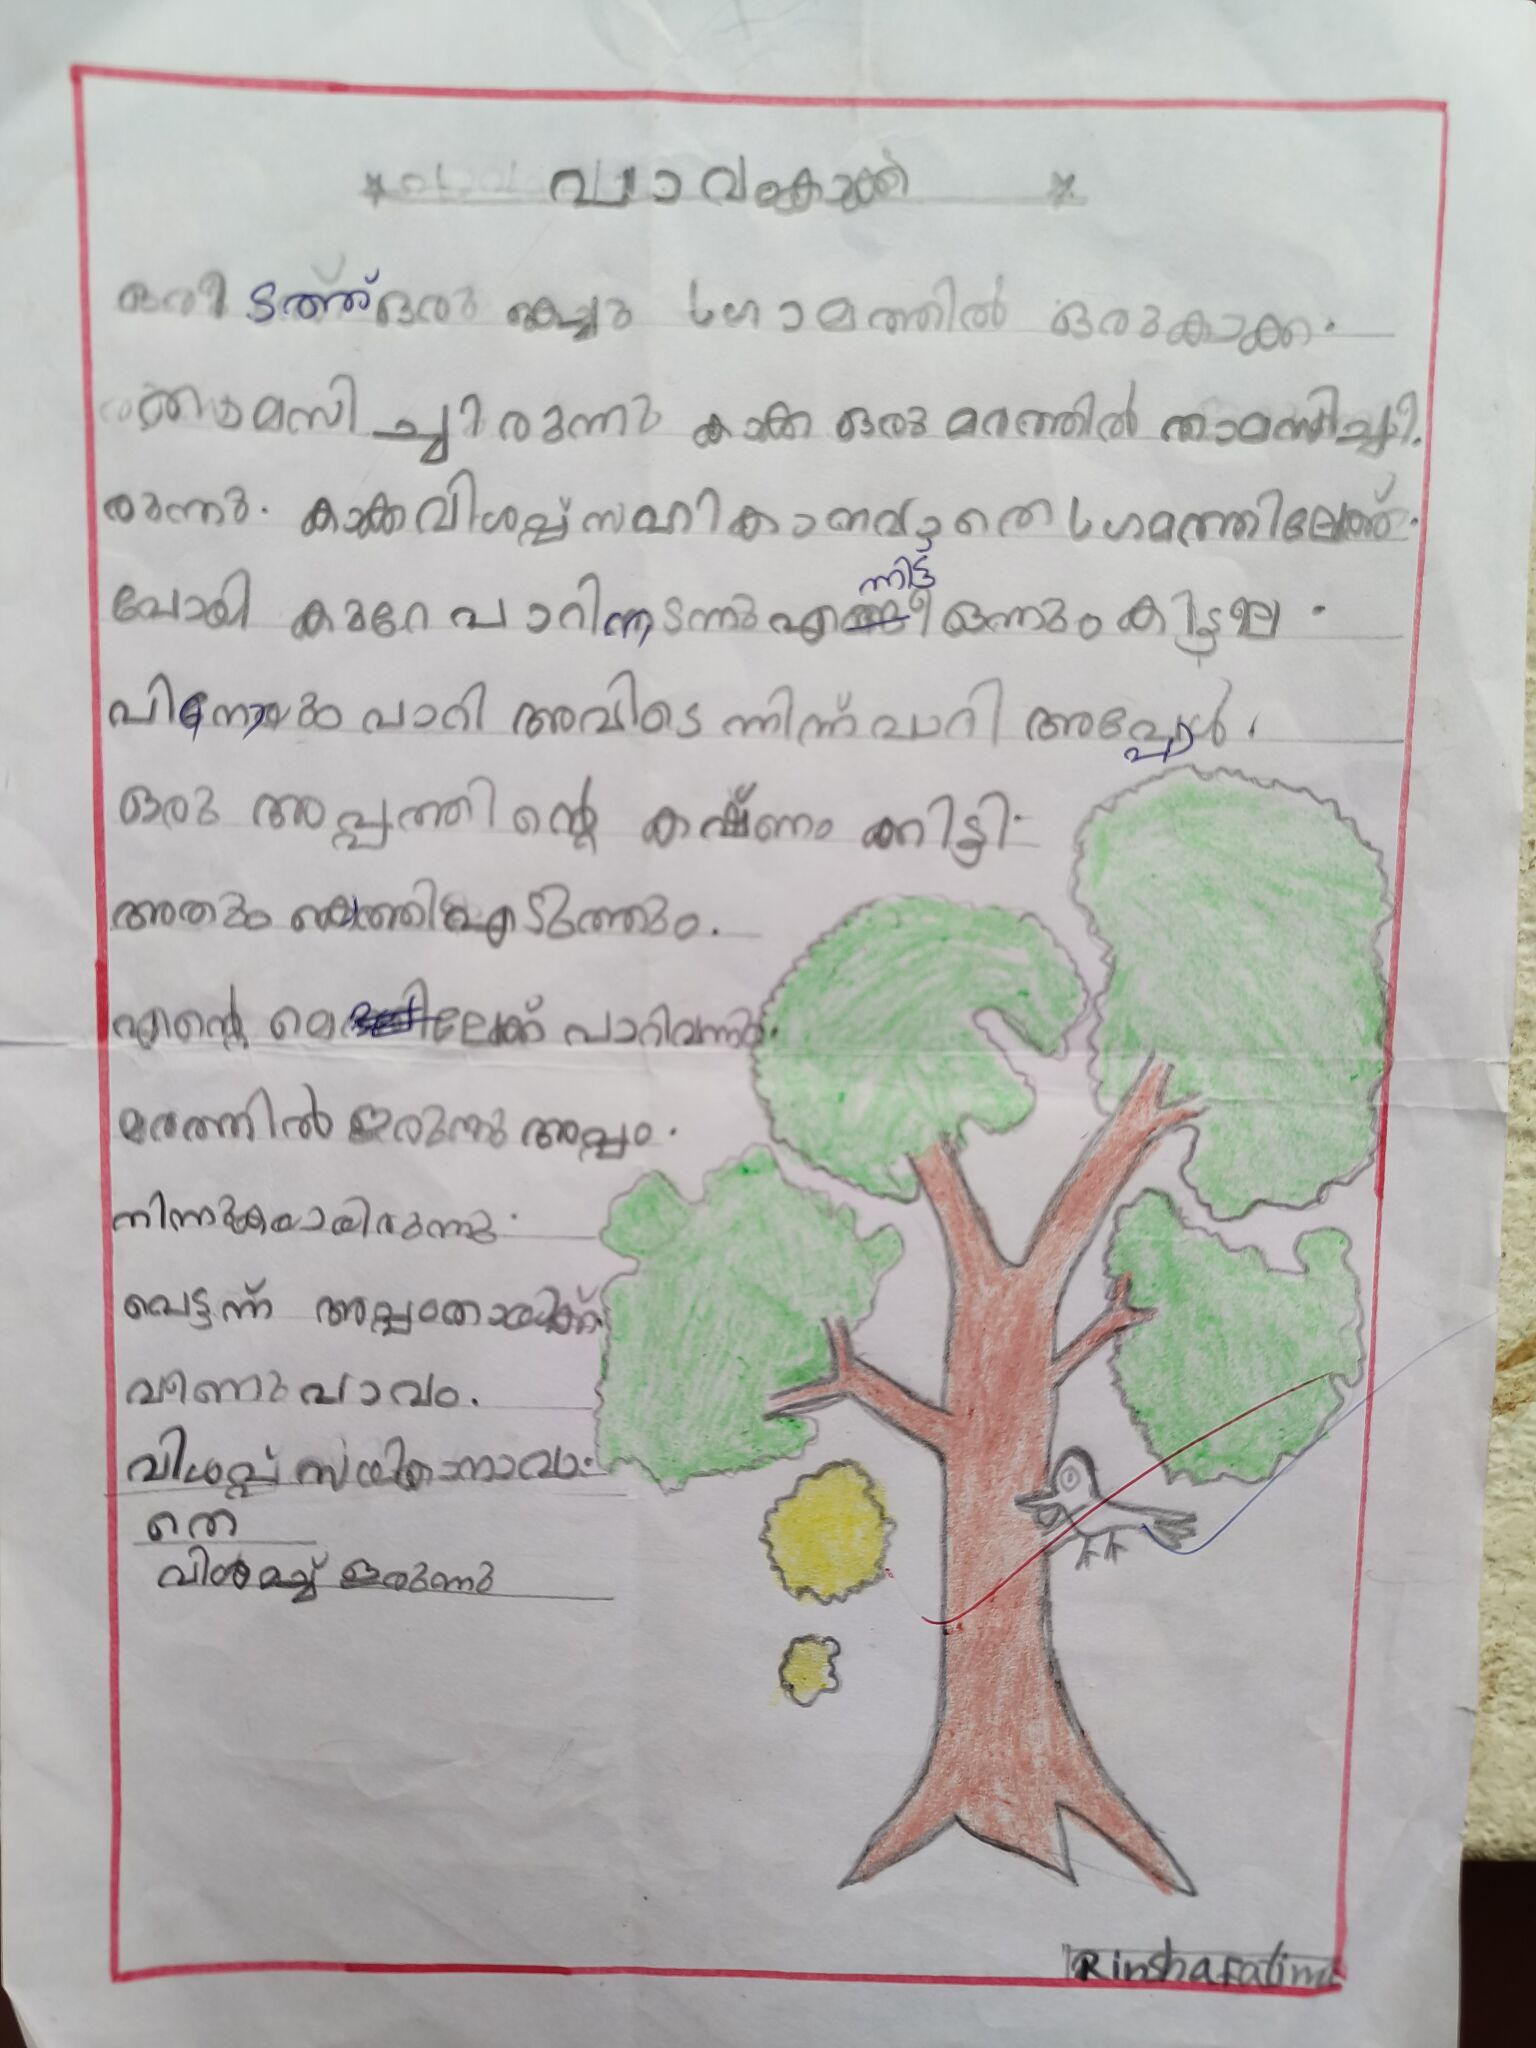 പാവംകാക്ക
ഒരിടത്ത് ഒരു കൊച്ചു ഗ്രാമത്തിൽ ഒരുകാക്ക.
താമസിച്ചിരുന്നു കാക്ക ഒരു മരത്തിൽ താമസിച്ചി.
രുന്നു. കാക്കവിശപ്പ് സഹികാനവാതെ ഗ്രമത്തിലേക്ക്.
പോയി കുറേ പാറിനടന്നു എന്നിട്ട് ഒന്നും കിട്ടല്ല.
പിന്നേയും പാറി അവിടെ ന്നിന്ന് പാറി അപ്പോൾ.
ഒരു അപ്പത്തിന്റെ കഷ്ണം ക്കിട്ടി.
അതും കൊത്തിഎടുത്തും.
എന്റെ ലേക്ക് പാറിവന്നു.
മരത്തിൽ ഇരുന്നു അപ്പം.
നിന്നുകയായിരുന്നു.
പെട്ടന്ന് അപ്പംതായിക്ക്
വീണു പാവം.
വിശപ്പ് സയികാനാവാ.
തെ
വിശമച്ച് ഇരുന്നു
Rinsha Fatima